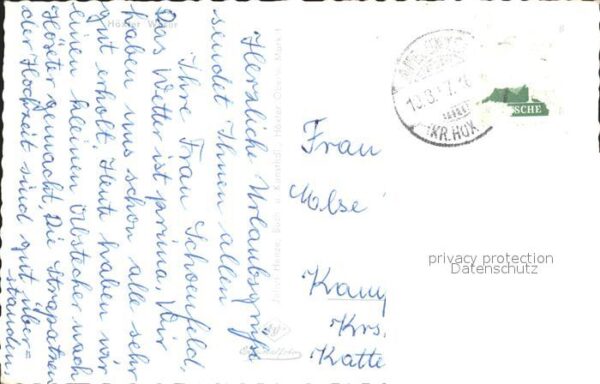 Höxter Weser
Herzliche Urlaubsgrüße
sendet Ihnen allen
Ihre Frau Schoenfeld,
Das Wetter ist prima, Wir
haben uns schon alle sehr
gut erholt. Heute haben wir
einen kleinen Abstecher nach
Höxter gemacht. Die Strapatzen
der Hochzeit sind gut über=
standen
KR. HÖX
SCHE
Frau
Kamp
Krs.
Katte
privacy protection
Datenschutz